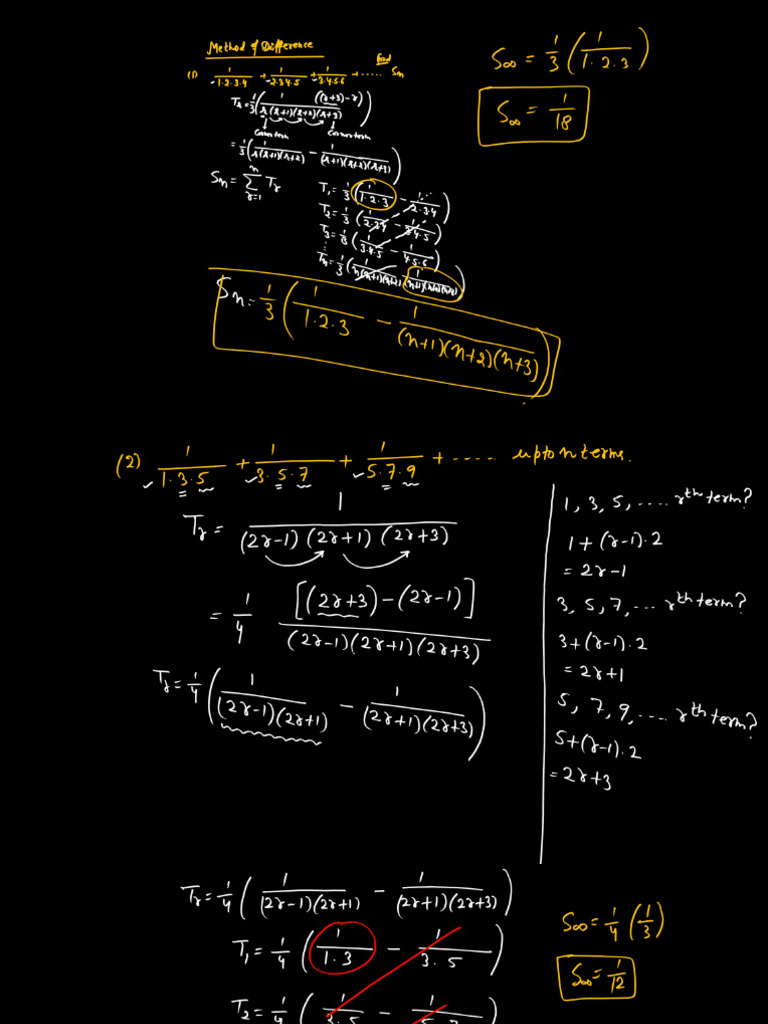 Method of Difference
(1) 1/1.2.3.4 + 1/2.3.4.5 + 1/3.4.5.6 + ..... find Sn
Tr = 1/3 ( 1 ((r+3)-r) / r(r+1)(r+2)(r+3) )
= 1/3 ( 1/r(r+1)(r+2) - 1/(r+1)(r+2)(r+3) )
Sn = Σ r=1 n Tr
T1 = 1/3 ( 1/1.2.3 - 1/2.3.4 )
T2 = 1/3 ( 1/2.3.4 - 1/3.4.5 )
T3 = 1/3 ( 1/3.4.5 - 1/4.5.6 )
Tn = 1/3 ( 1/n(n+1)(n+2) - 1/(n+1)(n+2)(n+3) )
Sn = 1/3 ( 1/1.2.3 - 1/(n+1)(n+2)(n+3) )
S∞ = 1/3 ( 1/1.2.3 )
S∞ = 1/18
(2) 1/1.3.5 + 1/3.5.7 + 1/5.7.9 + ..... upto n terms.
Tr = 1/(2r-1)(2r+1)(2r+3)
= 1/4 [(2r+3)-(2r-1)]/(2r-1)(2r+1)(2r+3)
Tr = 1/4 ( 1/(2r-1)(2r+1) - 1/(2r+1)(2r+3) )
1, 3, 5, .... rth term?
1+(r-1).2
= 2r-1
3, 5, 7, ... rth term?
3+(r-1).2
= 2r+1
5, 7, 9, .... rth term?
5+(r-1).2
= 2r+3
Tr = 1/4 ( 1/(2r-1)(2r+1) - 1/(2r+1)(2r+3) )
T1 = 1/4 ( 1/1.3 - 1/3.5 )
T2 = 1/4 ( 1/3.5 - 1/5.7 )
S∞ = 1/4 ( 1/3 )
S∞ = 1/12